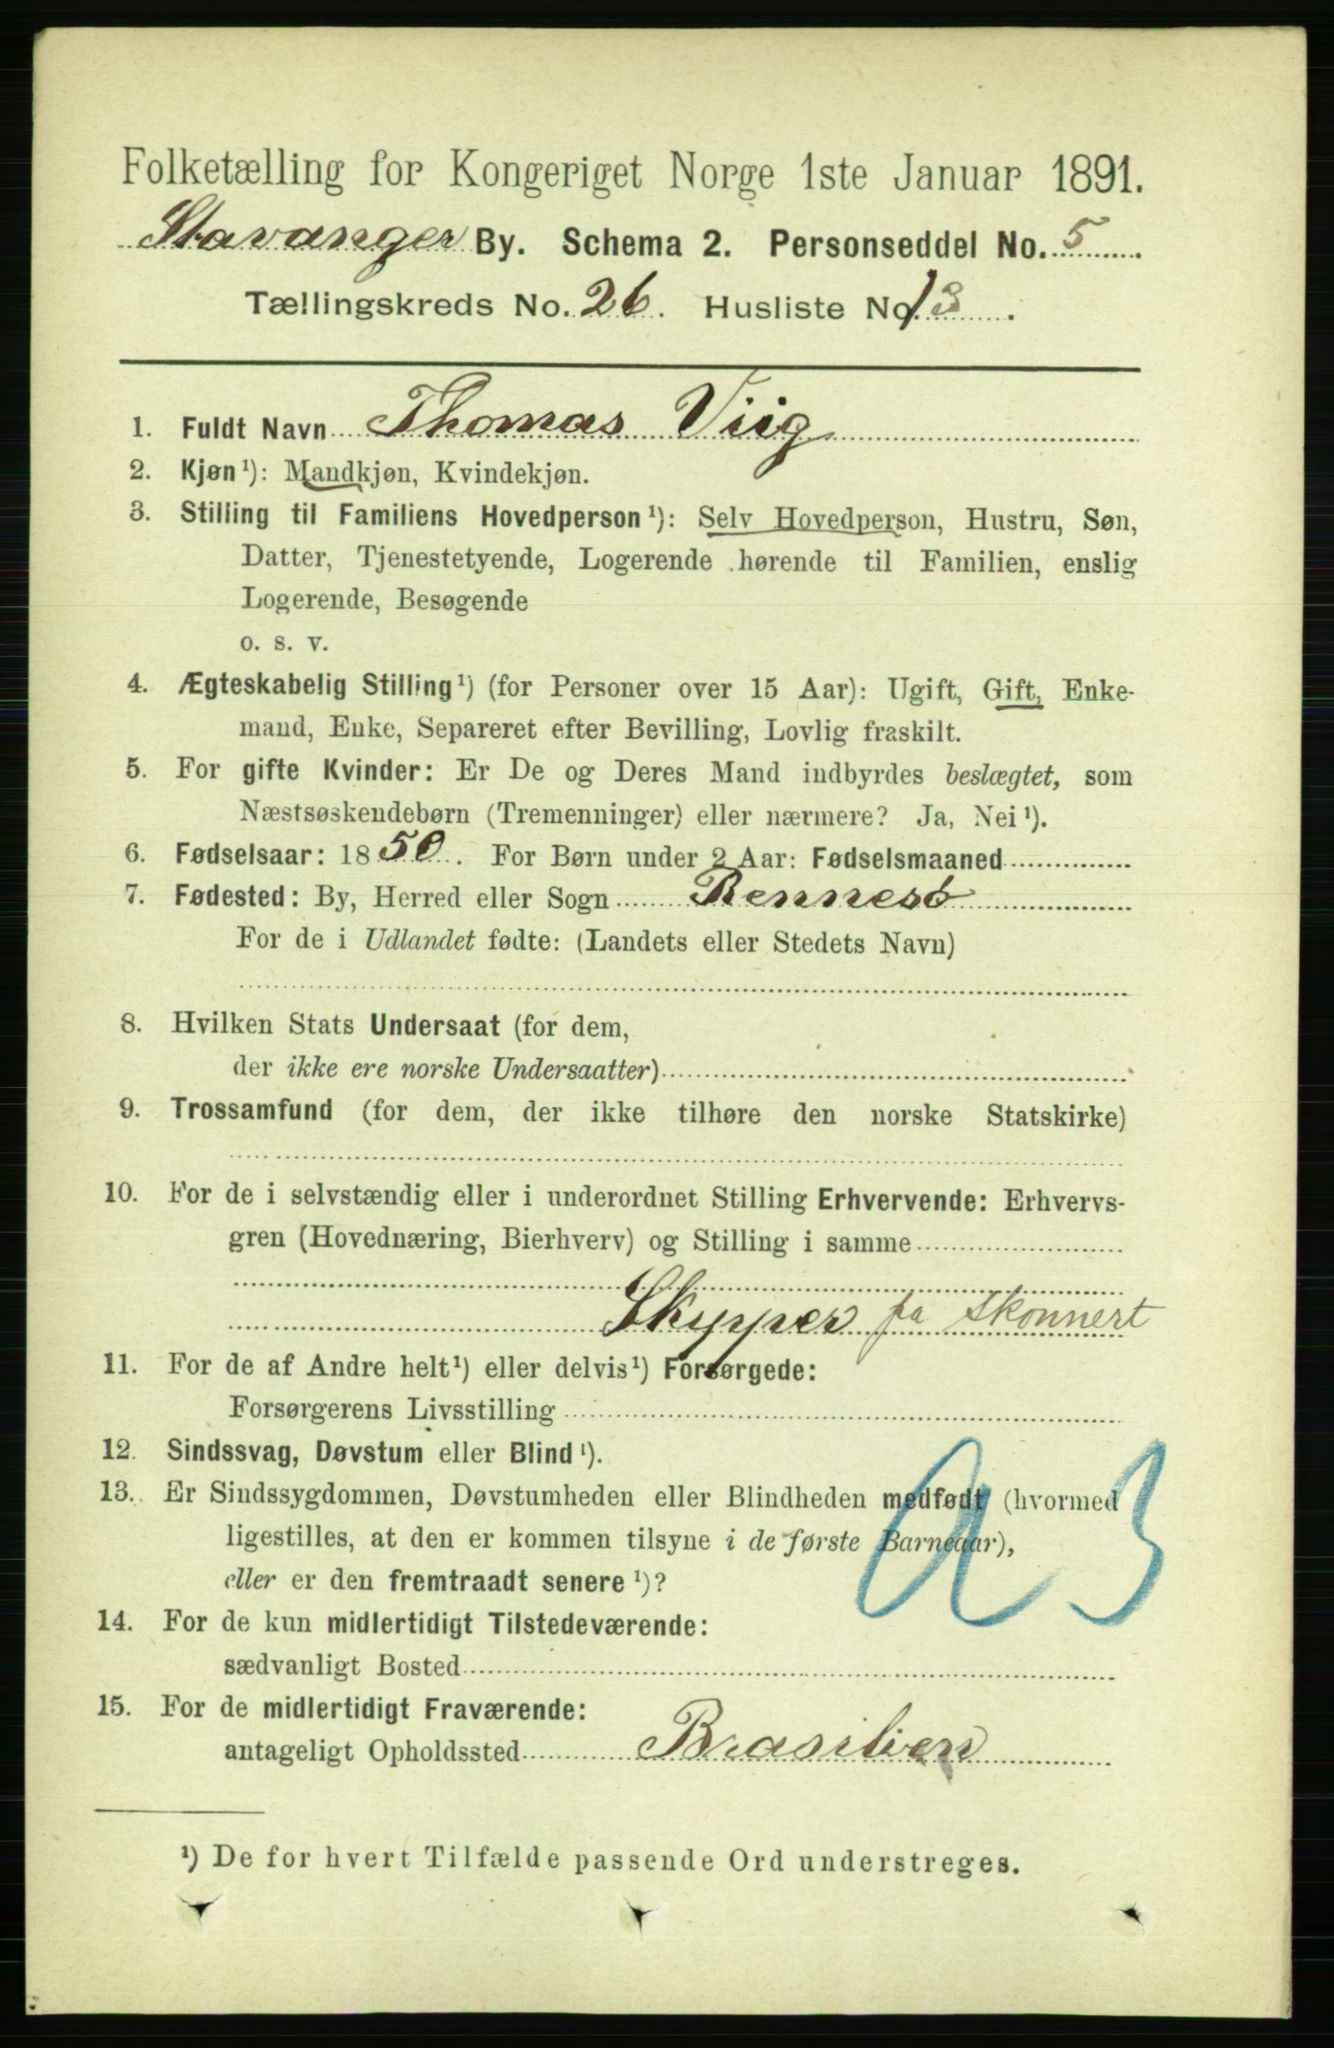 Folketælling for Kongeriget Norge 1ste Januar 1891.
Stavanger By. Schema 2. Personseddel No. 5
Tællingskreds No. 26. Husliste No. 13.
1. Fuldt Navn Thomas Viig
2. Kjøn¹): Mandkjøn, Kvindekjøn.
3. Stilling til Familiens Hovedperson¹): Selv Hovedperson, Hustru, Søn,
Datter, Tjenestetyende, Logerende hørende til Familien, enslig
Logerende, Besøgende
o. s. v.
4. Ægteskabelig Stilling¹) (for Personer over 15 Aar): Ugift, Gift, Enke-
mand, Enke, Separeret efter Bevilling, Lovlig fraskilt.
5. For gifte Kvinder: Er De og Deres Mand indbyrdes beslægtet, som
Næstsøskendebørn (Tremenninger) eller nærmere? Ja, Nei¹).
6. Fødselsaar: 1850. For Børn under 2 Aar: Fødselsmaaned
7. Fødested: By, Herred eller Sogn Rennesö
For de i Udlandet fødte: (Landets eller Stedets Navn)
8. Hvilken Stats Undersaat (for dem,
der ikke ere norske Undersaatter)
9. Trossamfund (for dem, der ikke tilhøre den norske Statskirke)
10. For de i selvstændig eller i underordnet Stilling Erhvervende: Erhvervs-
gren (Hovednæring, Bierhverv) og Stilling i samme
Skypper pa Skonnert
11. For de af Andre helt¹) eller delvis¹) Forsørgede:
Forsørgerens Livsstilling
12. Sindssvag, Døvstum eller Blind¹).
13. Er Sindssygdommen, Døvstumheden eller Blindheden medfødt (hvormed
ligestilles, at den er kommen tilsyne i de første Barneaar),
eller er den fremtraadt senere¹)?
a 3
14. For de kun midlertidigt Tilstedeværende:
sædvanligt Bosted
15. For de midlertidigt Fraværende:
antageligt Opholdssted Brasilien
¹) De for hvert Tilfælde passende Ord understreges.